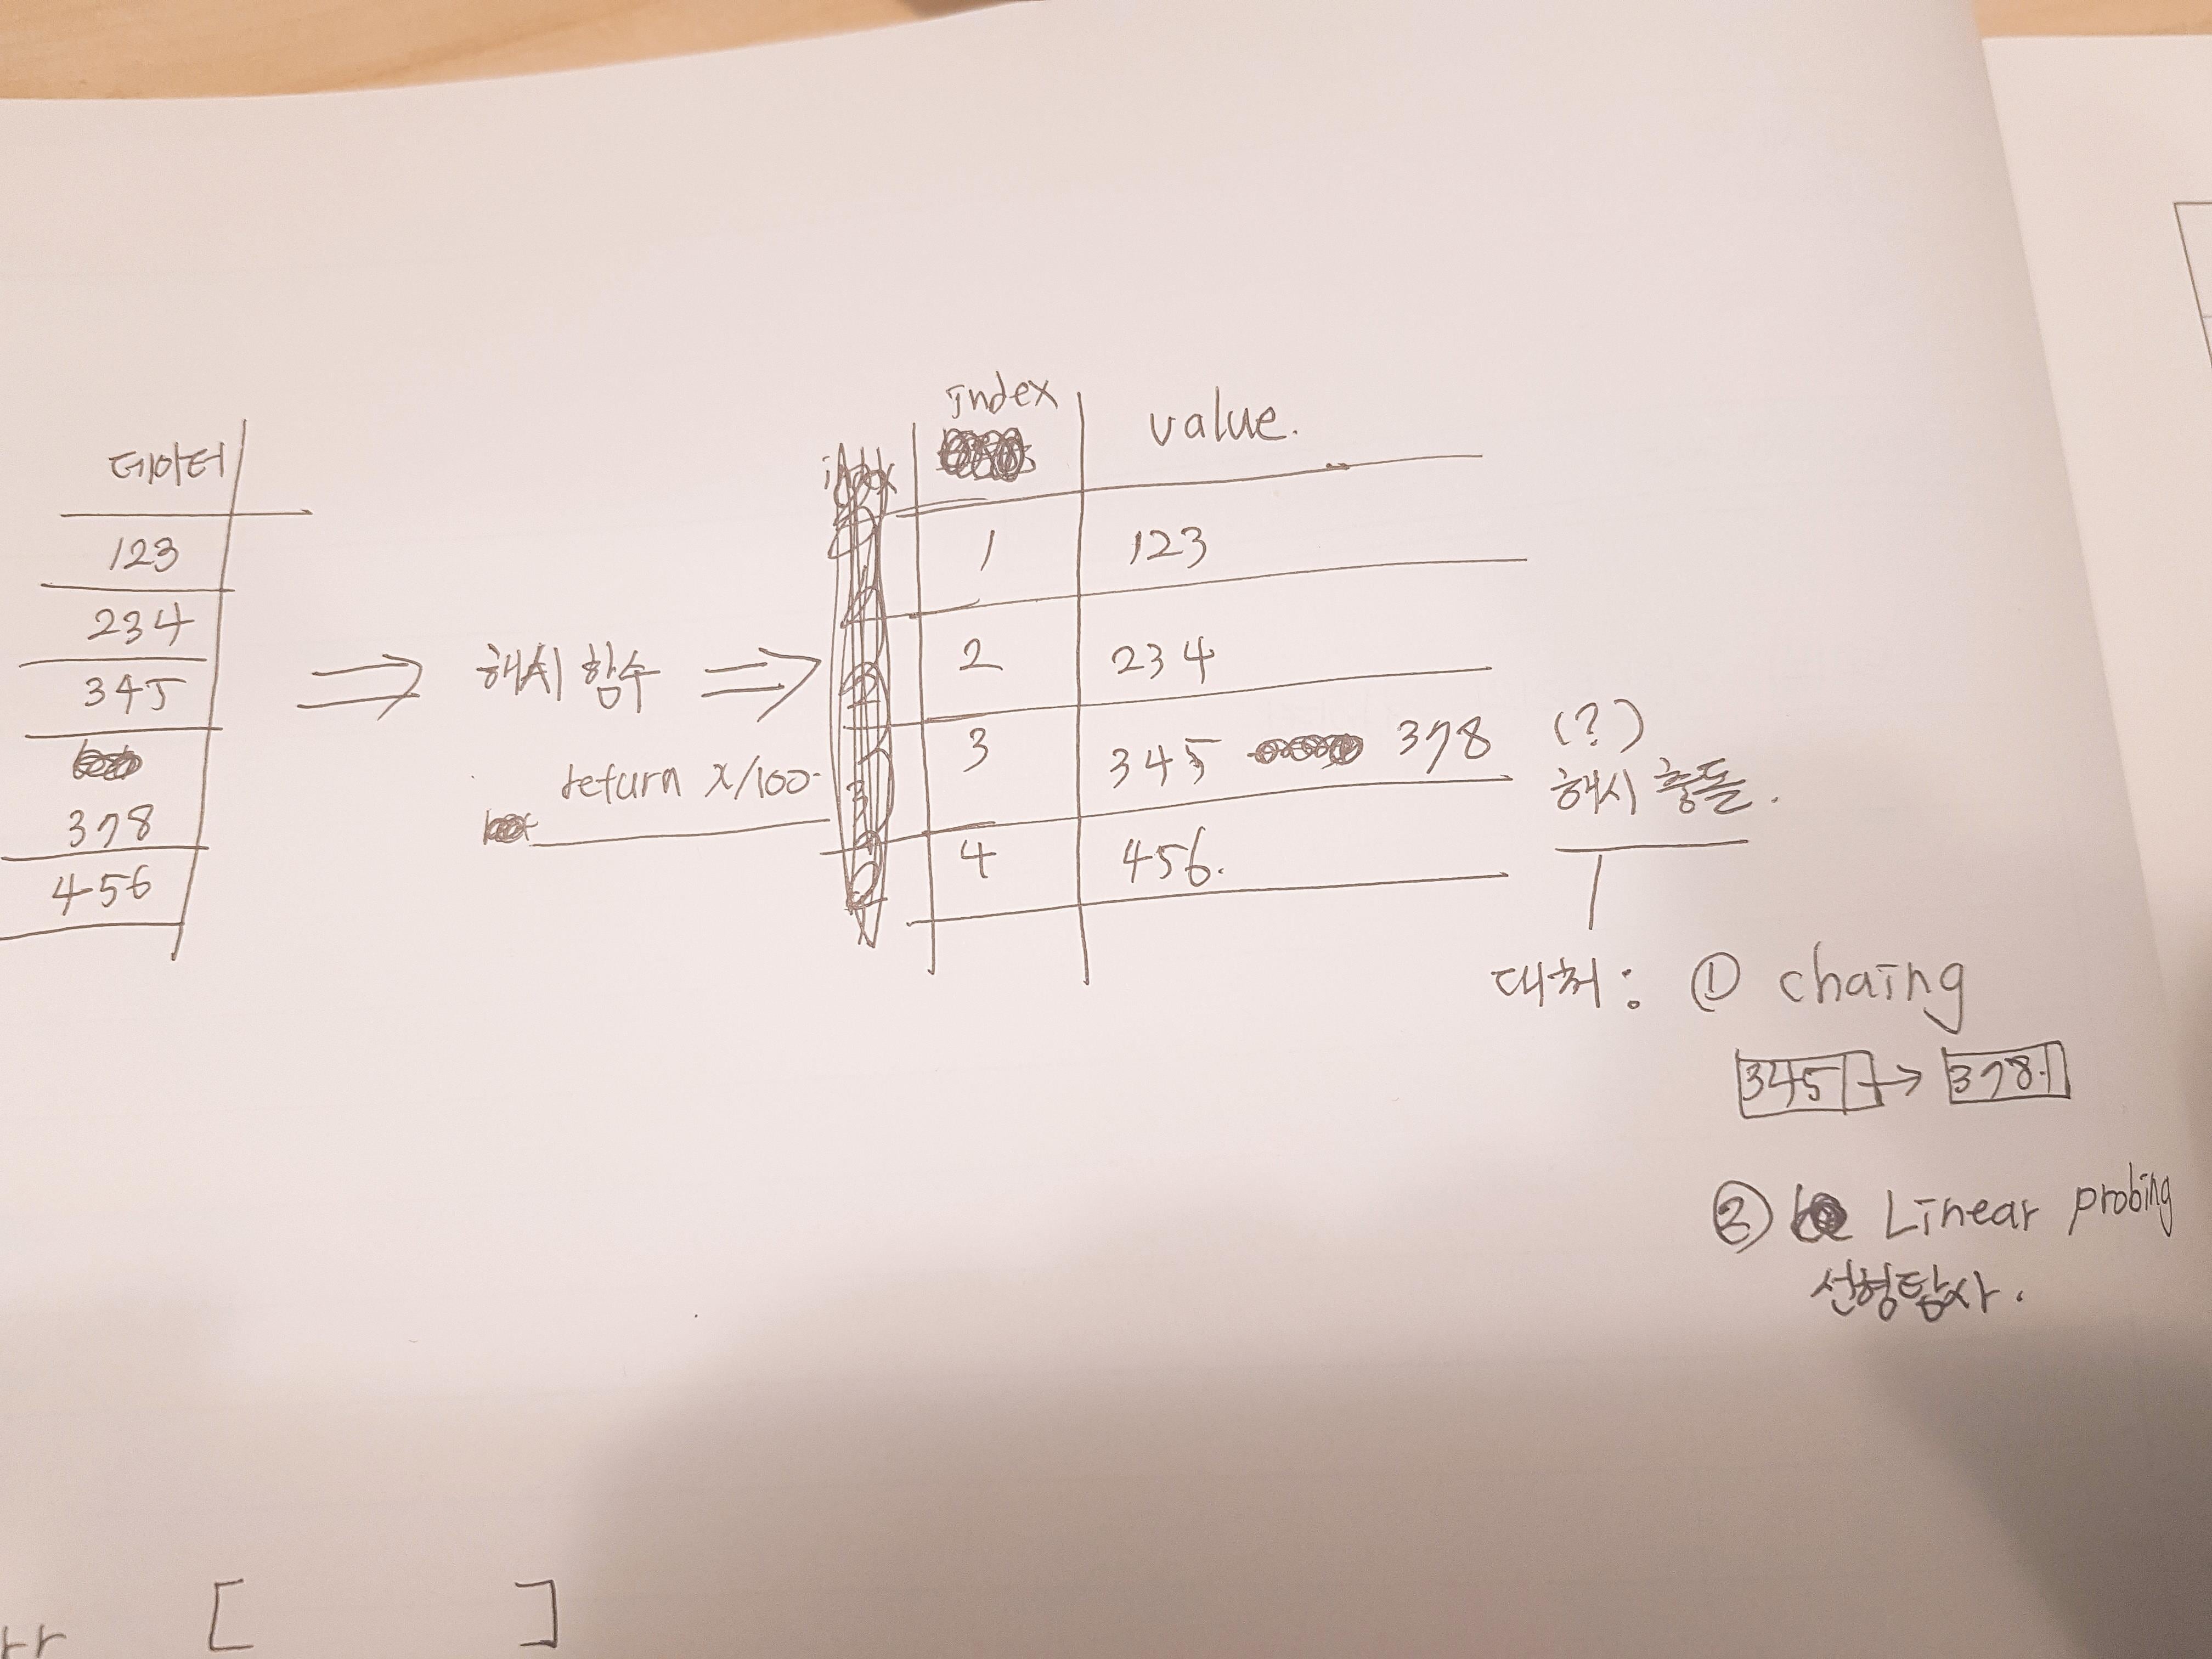 데이터
123
234
345
378
456
해시 함수
return x/100.
index
value.
1 123
2 234
3 345 378
4 456.
(?)
해시 충돌.
대처: ① chaing
345 → 378
② Linear probing
선형탐사.
rr [ ]